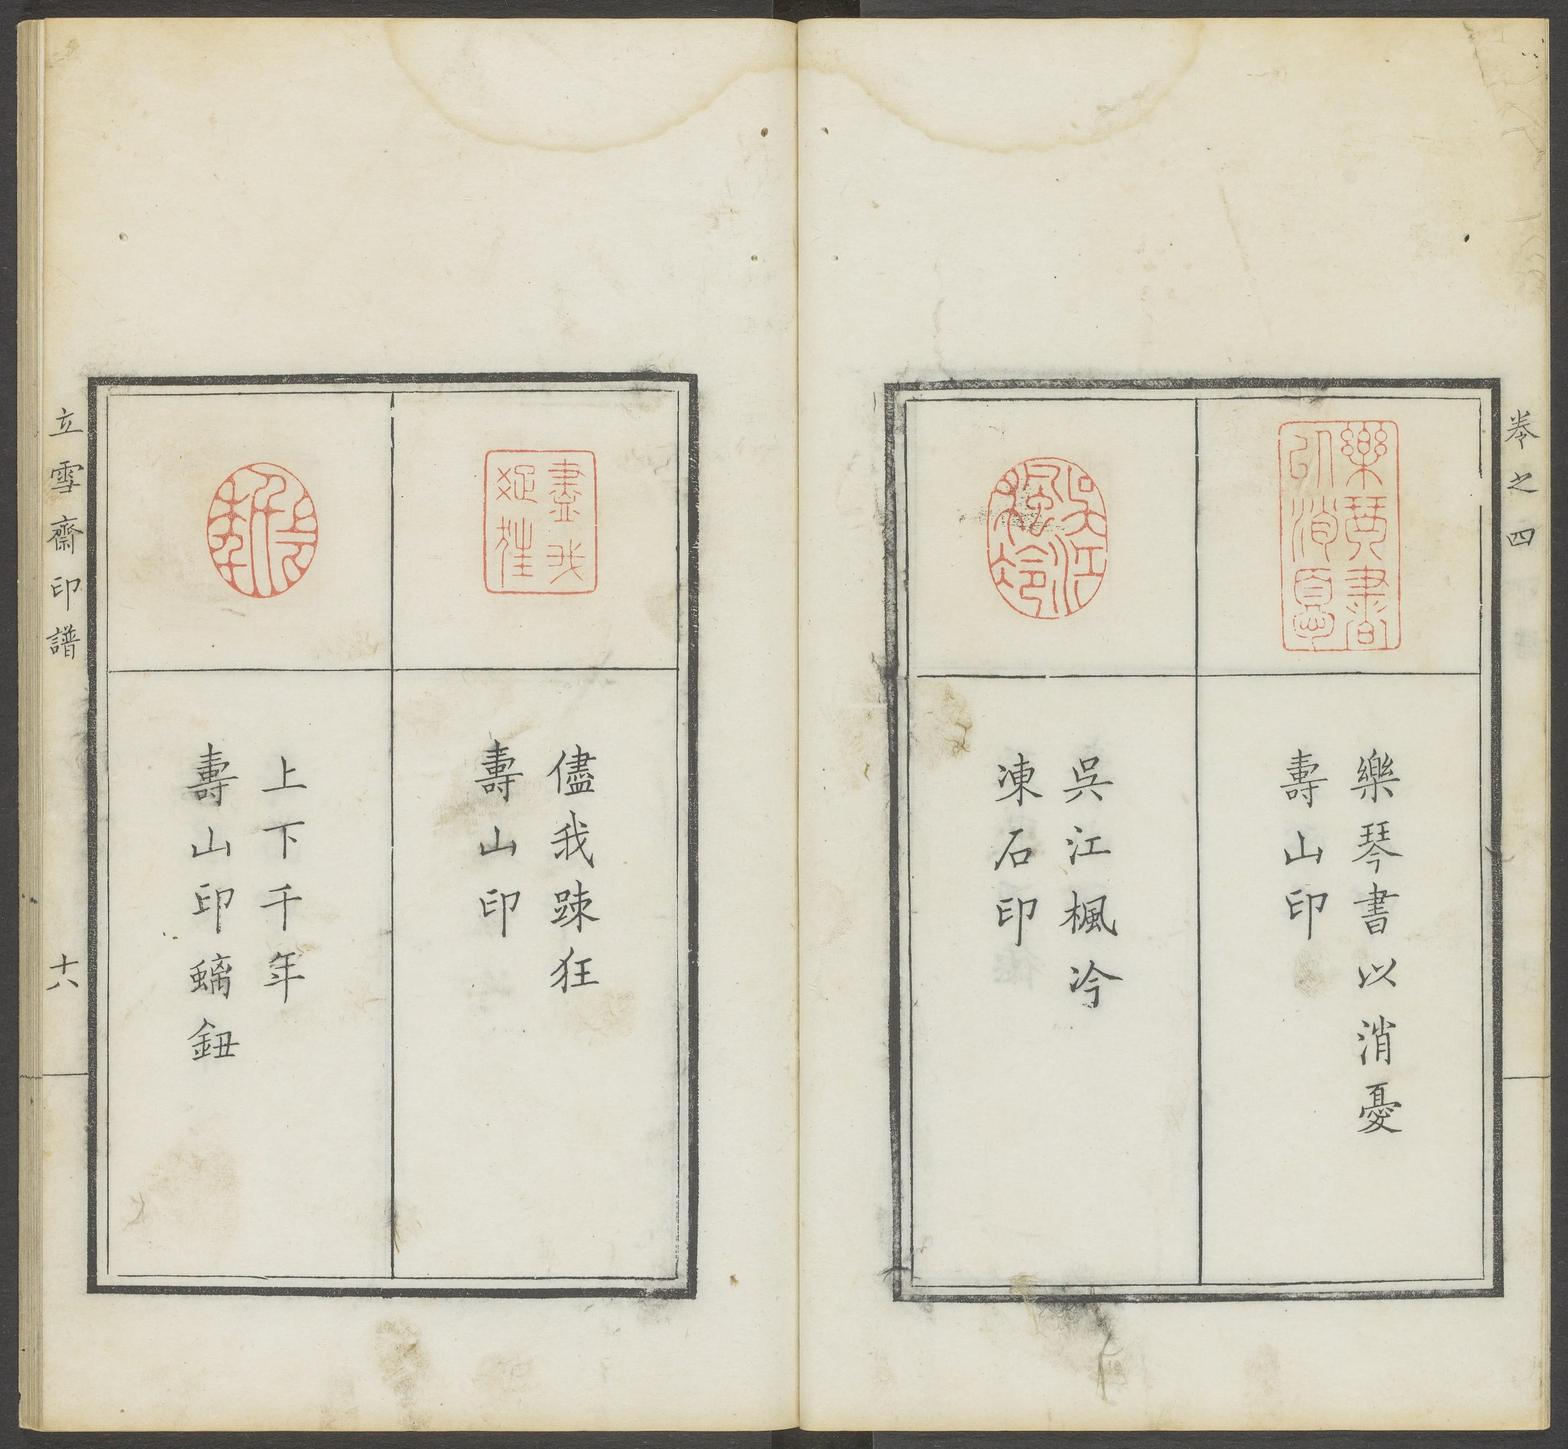 卷之四
樂琴書以消憂
壽山印
吳江楓冷
凍石印
儘我踈狂
壽山印
上下千年
壽山印螭鈕
立雪齋印譜
十六